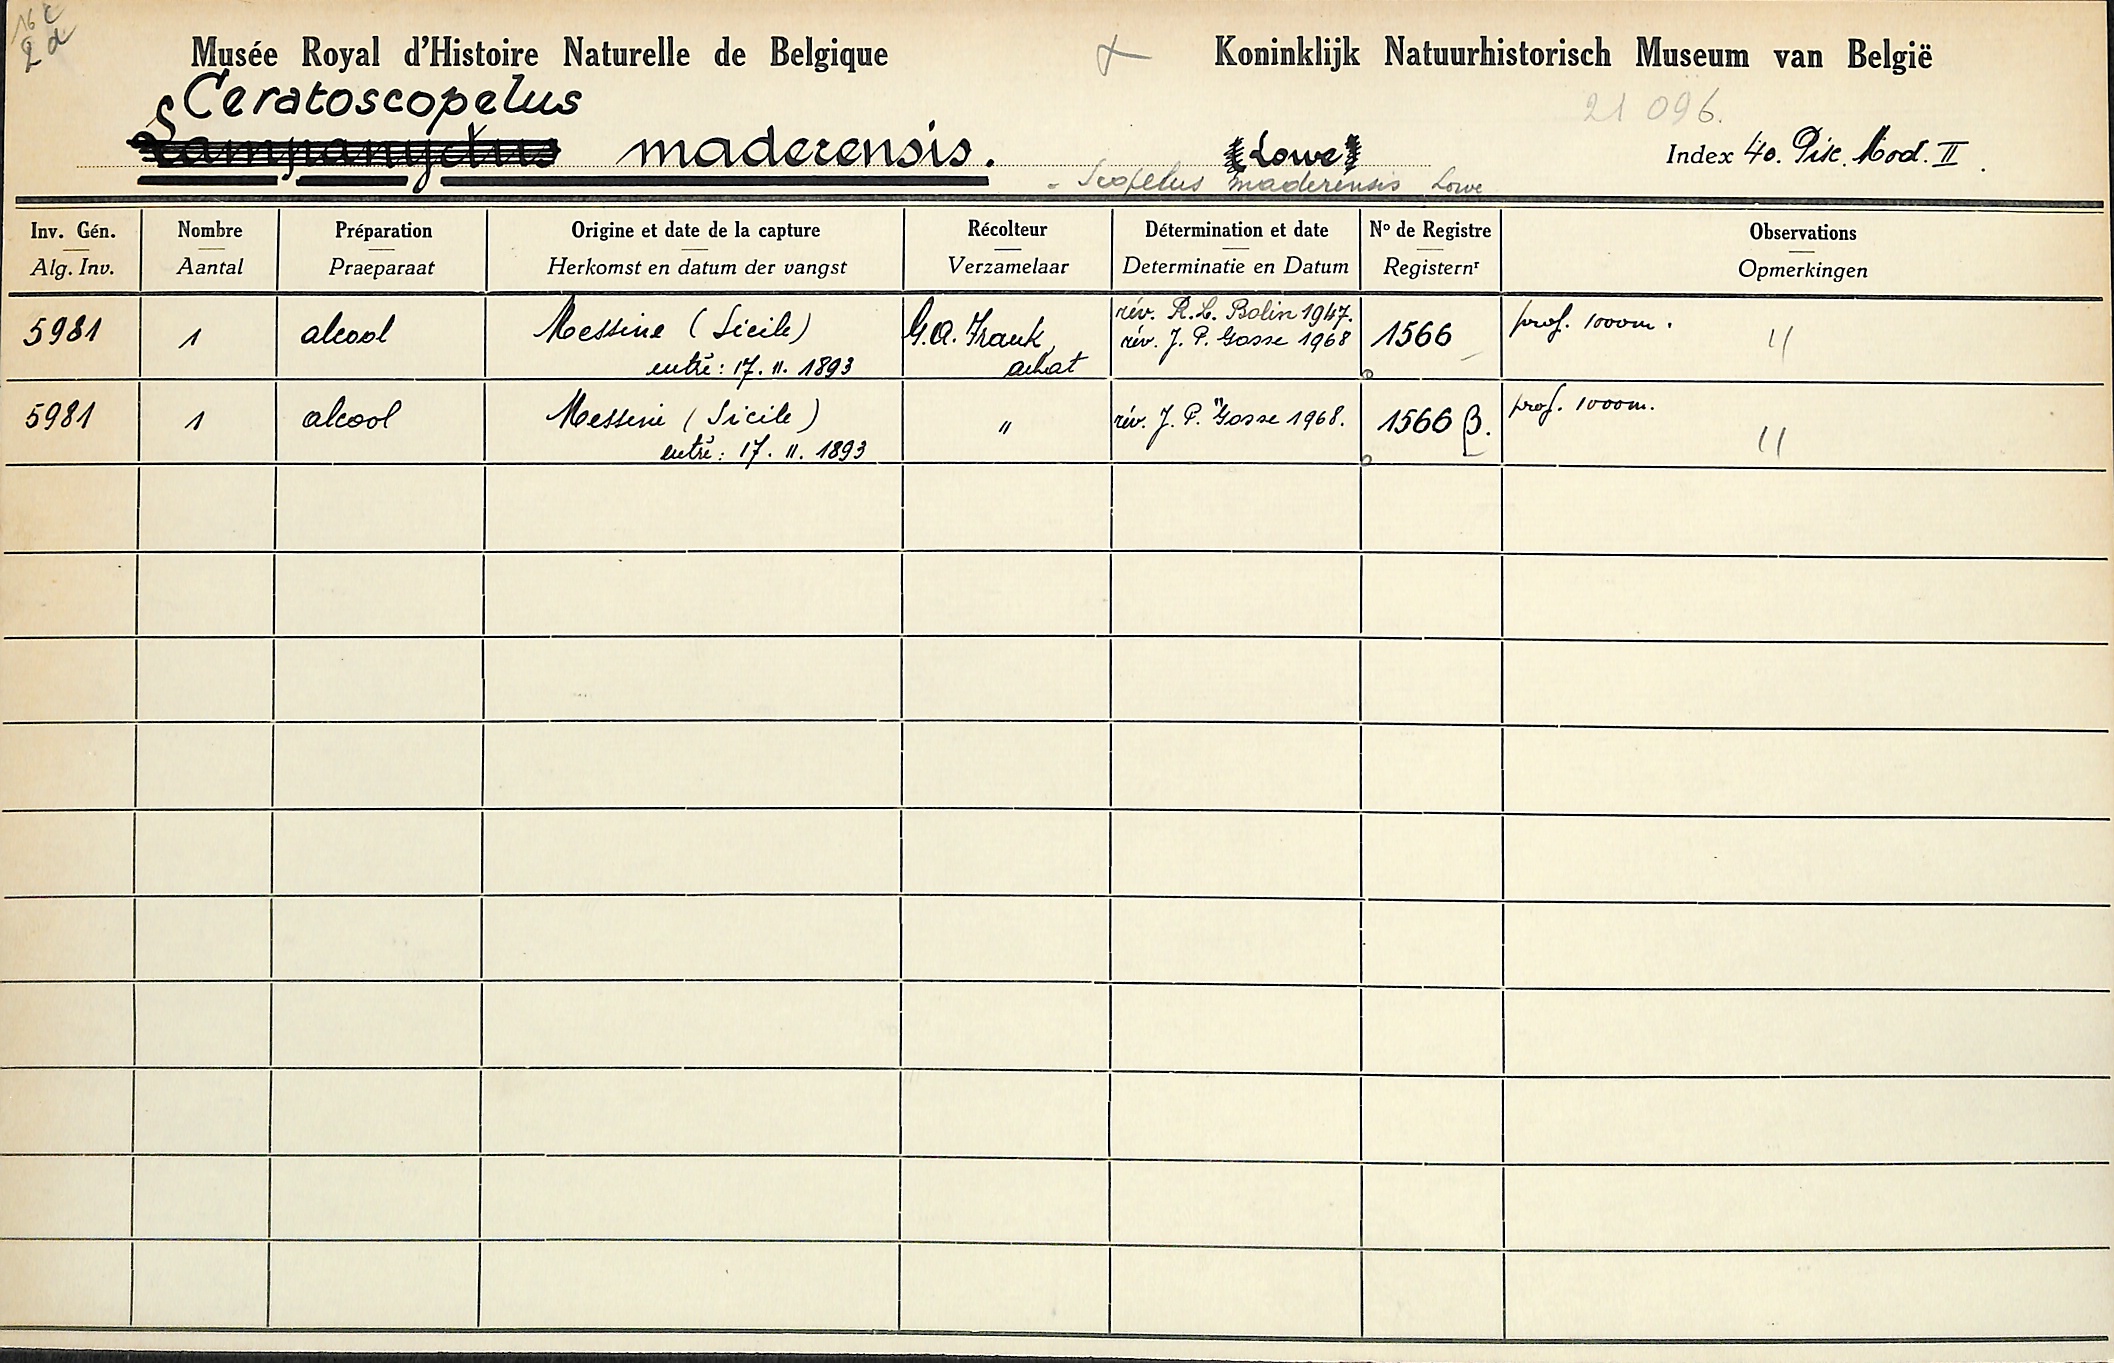 16 c
2 d
Musée Royal d'Histoire Naturelle de Belgique Koninklijk Natuurhistorisch Museum van België
Ceratoscopelus 21 096.
Lampanyctus maderensis. (Lowe) Index 40. Pisc. Mod. II.
= Scopelus maderensis Lowe
Inv. Gén. Nombre Préparation Origine et date de la capture Récolteur Détermination et date No de Registre Observations
Alg. Inv. Aantal Praeparaat Herkomst en datum der vangst Verzamelaar Determinatie en Datum Registernr Opmerkingen
5981 1 alcool Messine (Sicile) entré: 17. 11. 1893 G.A. Frank, achat rév. R.L. Bolin 1947. rév. J. P. Gosse 1968 1566 prof. 1000m. "
5981 1 alcool Messine (Sicile) entré: 17. 11. 1893 " rév. J. P. Gosse 1968. 1566 β. prof. 1000m. "